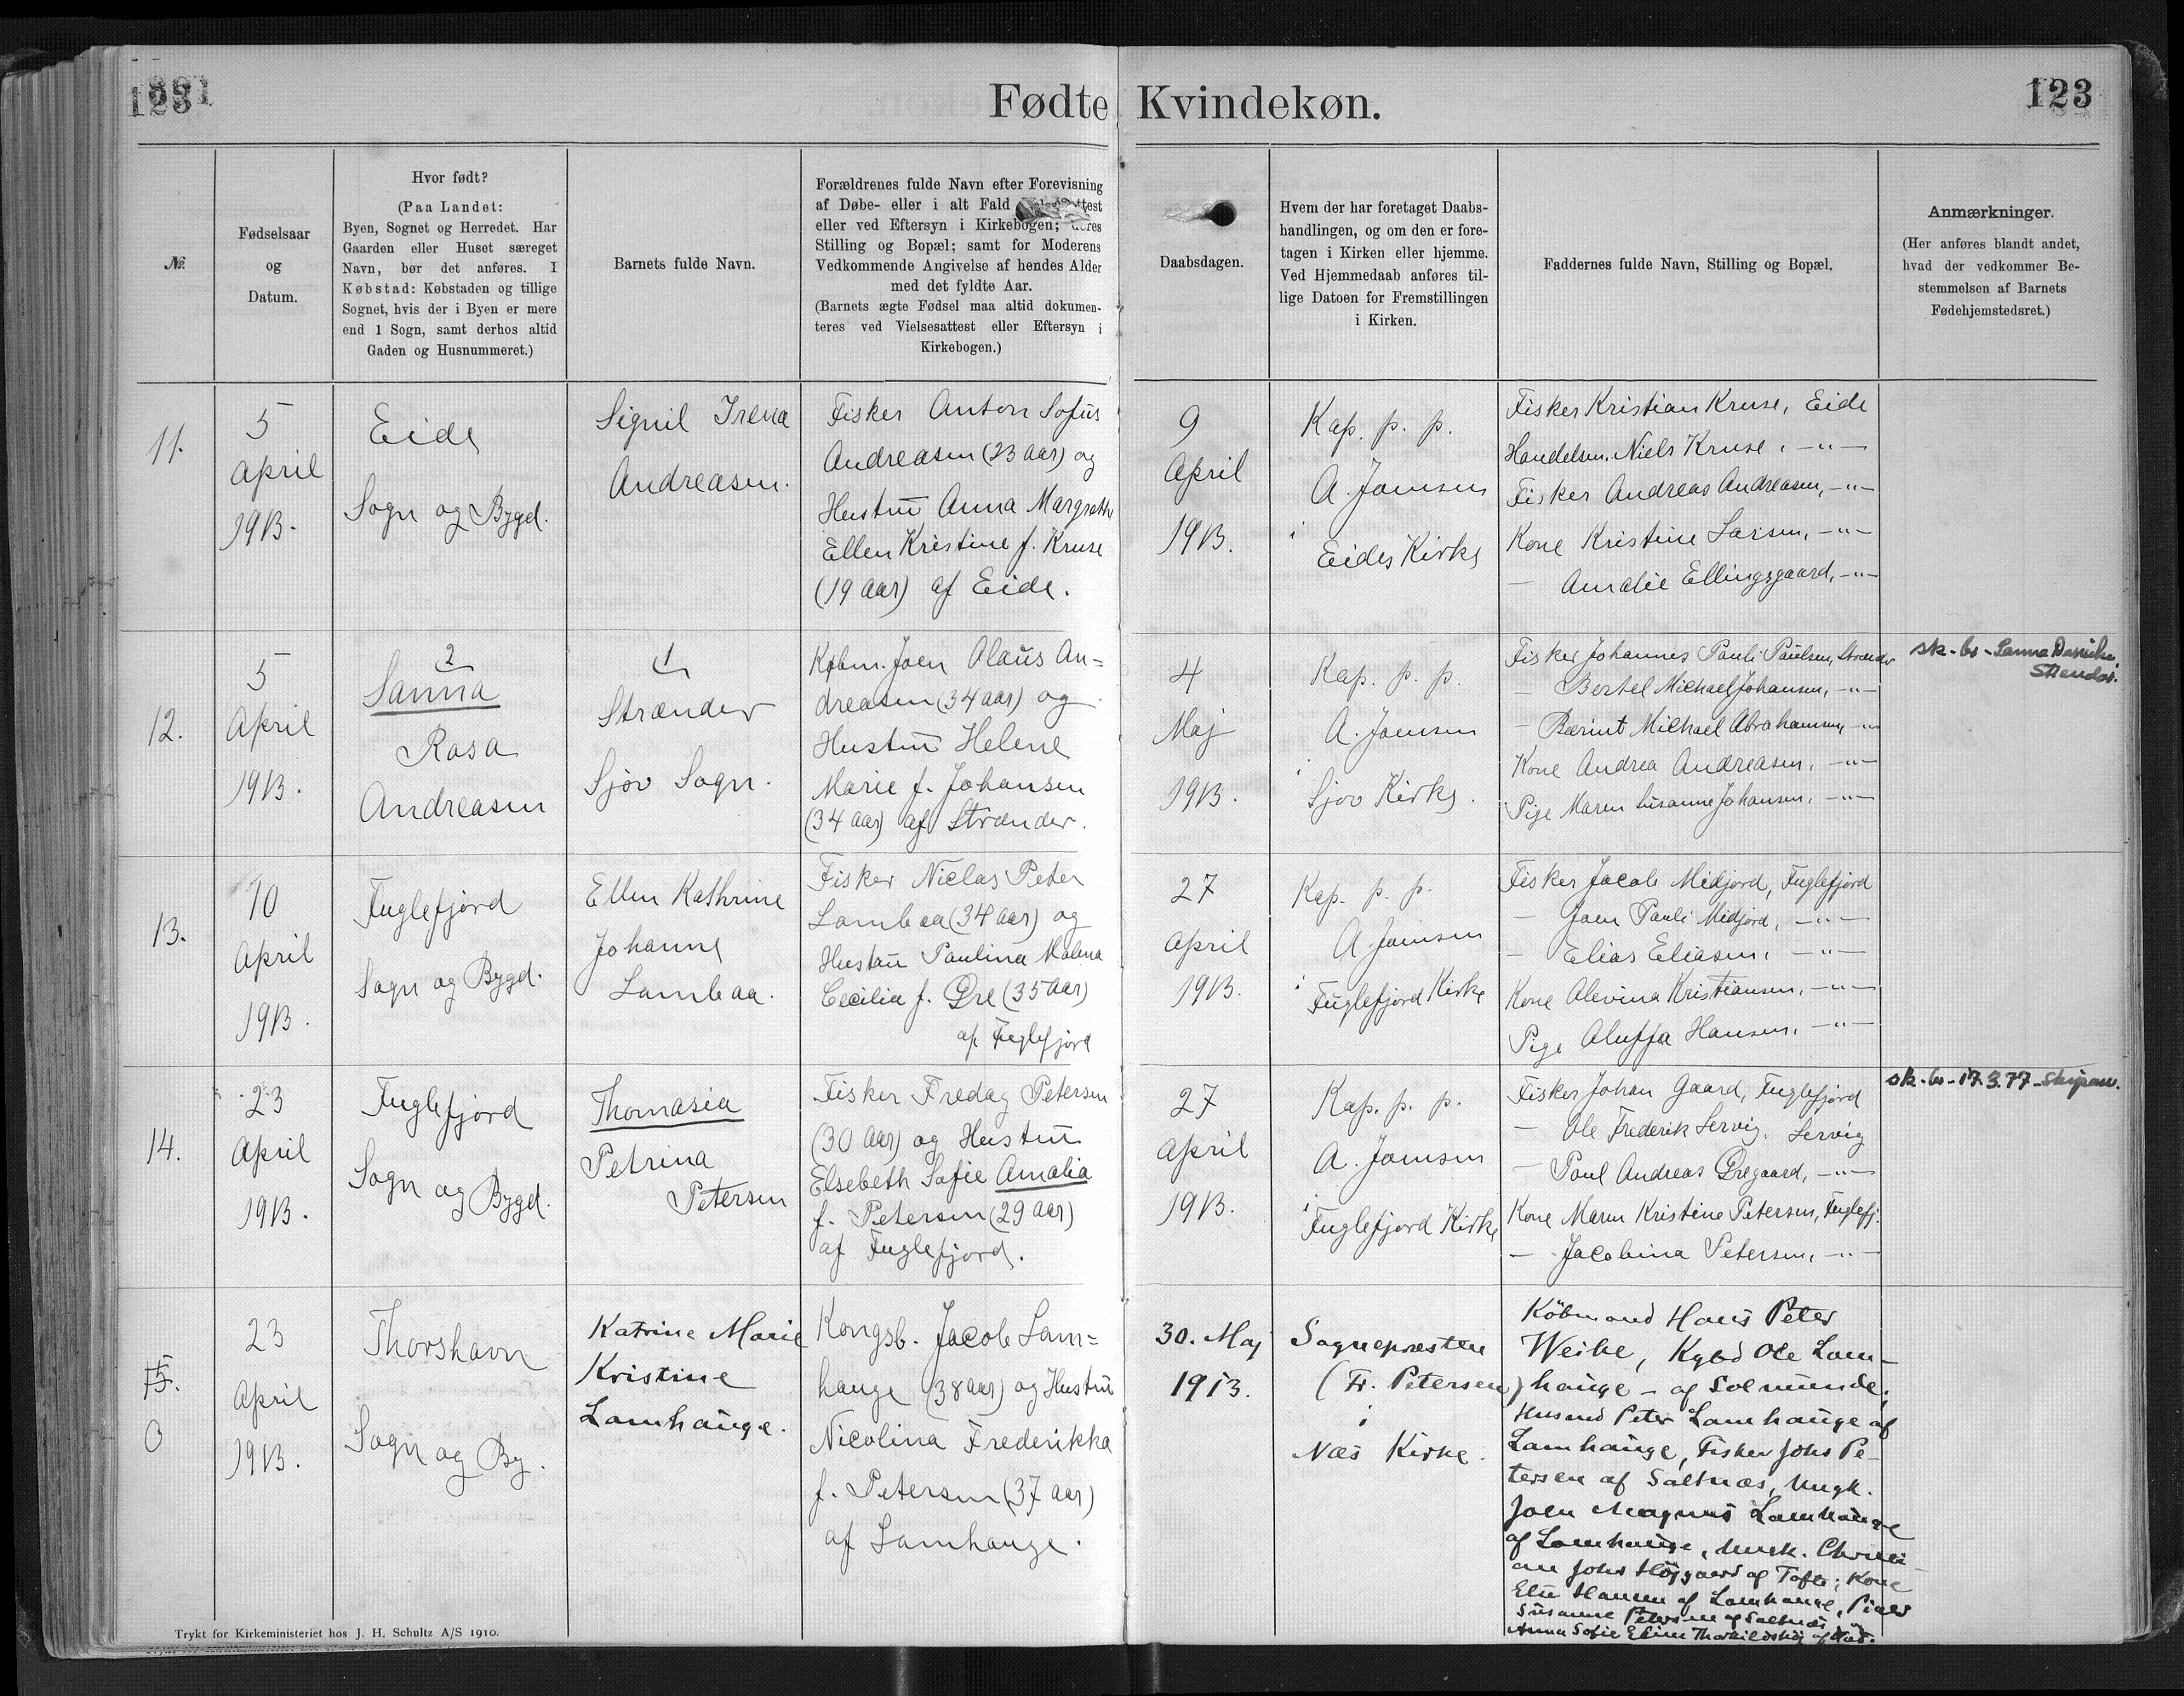 123
Fødte Kvindekøn.
123
№
Fødselsaar
og
Datum.
Hvor født?
(Paa Landet:
Byen, Sognet og Herredet. Har
Gaarden eller Huset særeget
Navn, bør det anføres. I
Købstad: Købstaden og tillige
Sognet, hvis der i Byen er mere
end 1 Sogn, samt derhos altid
Gaden og Husnummeret.)
Barnets fulde Navn.
Forældrenes fulde Navn efter Forevisning
af Døbe- eller i alt Fald
eller ved Eftersyn i Kirkebogen; deres
Stilling og Bopæl; samt for Moderens
Vedkommende Angivelse af hendes Alder
med det fyldte Aar.
(Barnets ægte Fødsel maa altid dokumen-
teres ved Vielsesattest eller Eftersyn i
Kirkebogen.)
Daabsdagen.
Hvem der har foretaget Daabs-
handlingen, og om den er fore-
tagen i Kirken eller hjemme.
Ved Hjemmedaab anføres til-
lige Datoen for Fremstillingen
i Kirken.
Faddernes fulde Navn, Stilling og Bopæl.
Anmærkninger.
(Her anføres blandt andet,
hvad der vedkommer Be-
stemmelsen af Barnets
Fødehjemstedsret.)
11.
5
April
1913.
Eide
Sogn og Bygd.
Signil Irena
Andreasen.
Fisker Anton Sofus
Andreasen (23 aar) og
Hustru Anna Margrethe
Ellen Kristine f. Kruse
(19 aar) af Eide.
9
April
1913.
Kap. p. p.
A. Joensen
i
Eides Kirke
Fisker Kristian Kruse, Eide
Handelsm. Niels Kruse, -"-
Fisker Andreas Andreasen, -"-
Kone Kristine Larsen, -"-
— Amalie Ellingsgaard, -"-
12.
5
April
1913.
2
Sanna
Rosa
Andreasen
1
Strænder
Sjov Sogn.
Købm. Joen Olaus An=
dreasen (34 aar) og
Hustru Helene
Marie f. Johansen
(34 aar) af Strænder.
4
Maj
1913.
Kap. p. p.
A. Joensen
i
Sjov Kirke.
Fisker Johannes Pauli Paulsen, Strænder
— Bertel Michael Johansen, -"-
— Berint Michael Abrahamsen, -"-
Kone Andrea Andreasen, -"-
Pige Maren Susanne Johansen, -"-
13.
10
April
1913.
Fuglefjord
Sogn og Bygd.
Ellen Kathrine
Johanne
Lambaa.
Fisker Niclas Peter
Lambaa (34 aar) og
Hustru Paulina Malena
Cecilia f. Øre (35 aar)
af Fuglefjord
27
April
1913.
Kap. p. p.
A. Joensen
i
Fuglefjord Kirke
Fisker Jacob Midjord, Fuglefjord
— Joen Pauli Midjord, -"-
— Elias Eliasen, -"-
Kone Olevina Kristiansen, -"-
Pige Oluffa Hansen, -"-
14.
23
April
1913.
Fuglefjord
Sogn og Bygd.
Thomasia
Petrina
Petersen
Fisker Fredag Petersen
(30 aar) og Hustru
Elsebeth Sofie Amalia
f. Petersen (29 aar)
af Fuglefjord.
27
April
1913.
Kap. p. p.
A. Joensen
i
Fuglefjord Kirke
Fisker Johan Gaard, Fuglefjord
— Ole Frederik Lervig, Lervig
— Poul Andreas Øregaard, -"-
Kone Maren Kristine Petersen, Fuglefj.
— Jacobina Petersen, -"-
sk-br-17.3.77
15.
0
23
April
1913.
Thorshavn
Sogn og By.
Katrine Marie
Kristine
Lamhauge.
Kongsb. Jacob Lam=
hauge (38 aar) og Hustru
Nicolina Frederikka
f. Petersen (37 aar)
af Lamhauge.
30. Maj
1913.
Sognepræsten
(Fr. Petersen)
i
Næs Kirke.
Købmand Hans Peter
Weihe, Kgbd Ole Lam-
hauge - af Solmunde,
Husmd Peter Lamhauge af
Lamhauge, Fisker Johs Pe-
tersen af Saltnæs, Ungk.
Joen Magnus Lamhauge
af Lamhauge, Ungk. Christi-
an Johs Højgaard af Tofte; Kone
Else Hansen af Lamhauge, Piger
Susanne Petersen af Saltnæs og
Anna Sofie Thorkildshøj af
Trykt for Kirkeministeriet hos J. H. Schultz A/S 1910.